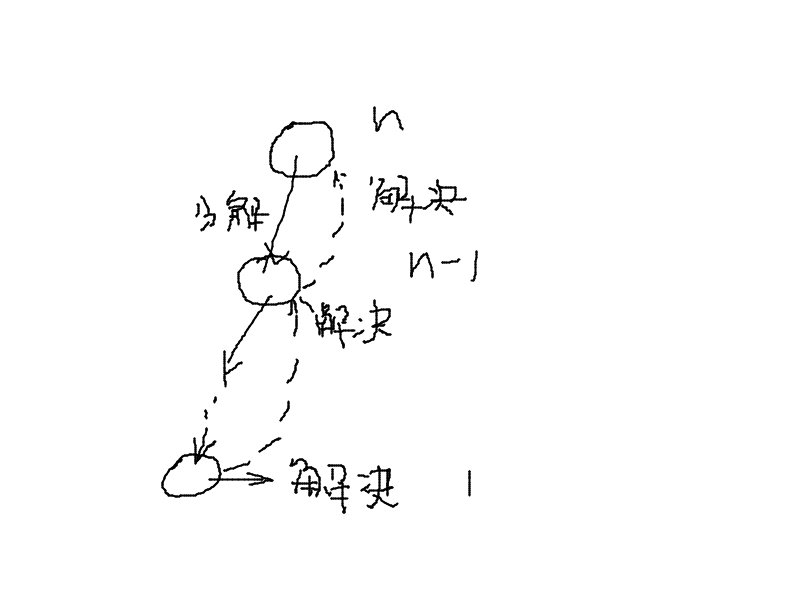 n
分解
解决
n-1
解决
解决 1